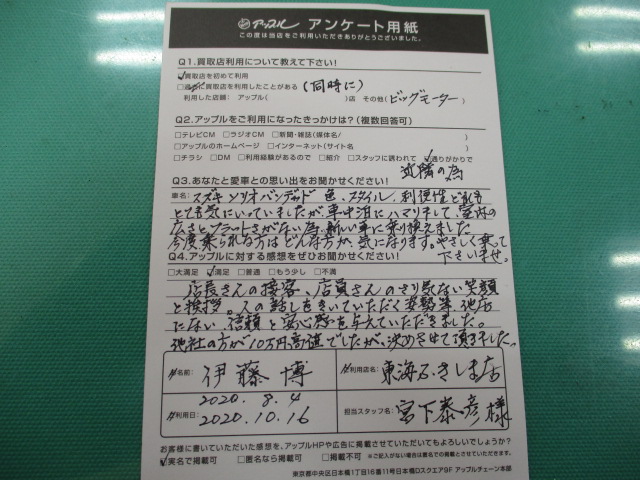 アップル アンケート用紙
この度は当店をご利用いただきありがとうございました。
Q1.買取店利用について教えて下さい!
☑買取店を初めて利用
□過去に買取店を利用したことがある (同時に)
利用した店舗: アップル( )店 その他(ビッグモーター)
Q2.アップルをご利用になったきっかけは?(複数回答可)
□テレビCM □ラジオCM □新聞・雑誌(媒体名/ )
□アップルのホームページ □インターネット(サイト名 )
□チラシ □DM □利用経験があるので □紹介 □スタッフに誘われて ☑通りがかりで
近隣の為
Q3.あなたと愛車との思い出をお聞かせください!
車名: スズキ ソリオバンディット 色、スタイル、利便性どれも
とても気にいっていましたが車中泊にハマリまして、室内の
広さとフラットさがない為、新しい車に乗り換えました
今度乗られる方はどんな方か、気になります。やさしく乗って
下さいませ。
Q4.アップルに対する感想をぜひお聞かせください!
□大満足 ☑満足 □普通 □もう少し □不満
店長さんの接客、店員さんのさり気ない笑顔
と挨拶。人の話しをきいていただく姿勢等、他店
にない、信頼と安心感を与えていただきました。
他社の方が10万円高値でしたが、決めさせて頂きました。
お名前: 伊藤 博
ご利用店名: 東海名きしま店
2020. 8. 4
ご利用日: 2020. 10. 16
担当スタッフ名: 宮下泰彦様
お客様に書いていただいた感想を、アップルHPや広告に掲載させていただいてもよろしいでしょうか?
☑実名で掲載可 □匿名なら掲載可 □掲載不可 ※ご記入がない場合は匿名での掲載とさせていただきます。
東京都中央区日本橋1丁目16番11号日本橋Dスクエア9F アップルチェーン本部